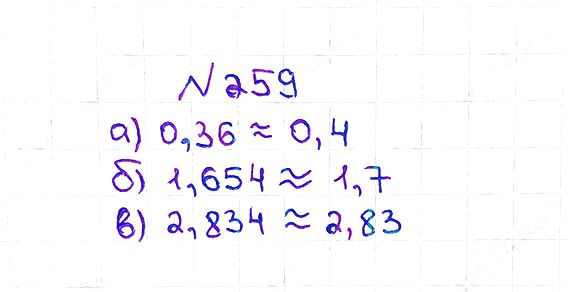 N 259
а) 0,36 ≈ 0,4
б) 1,654 ≈ 1,7
в) 2,834 ≈ 2,83